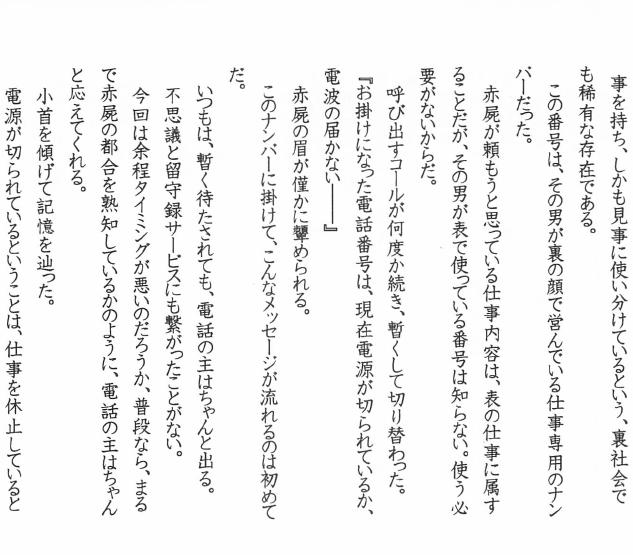 事を持ち、しかも見事に使い分けているという、裏社会で
も稀有な存在である。
この番号は、その男が裏の顔で営んでいる仕事専用のナン
バーだった。
赤屍が頼もうと思っている仕事内容は、表の仕事に属す
ることだが、その男が表で使っている番号は知らない。使う必
要がないからだ。
呼び出すコールが何度か続き、暫くして切り替わった。
『お掛けになった電話番号は、現在電源が切られているか、
電波の届かない――』
赤屍の眉が僅かに顰められる。
このナンバーに掛けて、こんなメッセージが流れるのは初めて
だ。
いつもは、暫く待たされても、電話の主はちゃんと出る。
不思議と留守録サービスにも繋がったことがない。
今回は余程タイミングが悪いのだろうか、普段なら、まる
で赤屍の都合を熟知しているかのように、電話の主はちゃん
と応えてくれる。
小首を傾げて記憶を辿った。
電源が切られているということは、仕事を休止していると